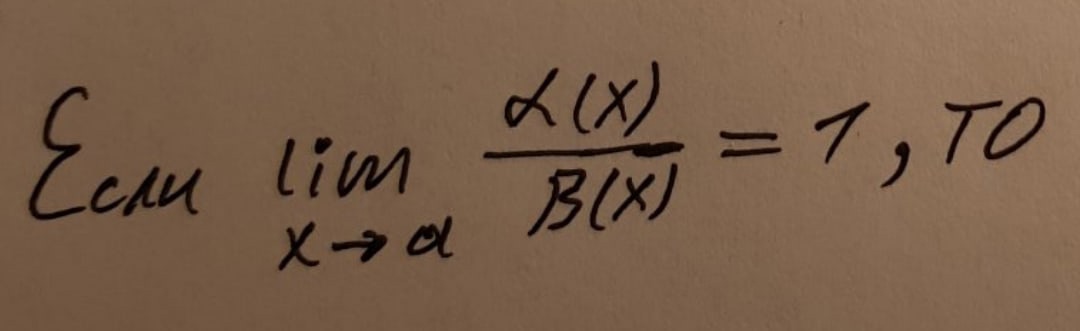 Если lim x→a α(x)/β(x) = 1, то